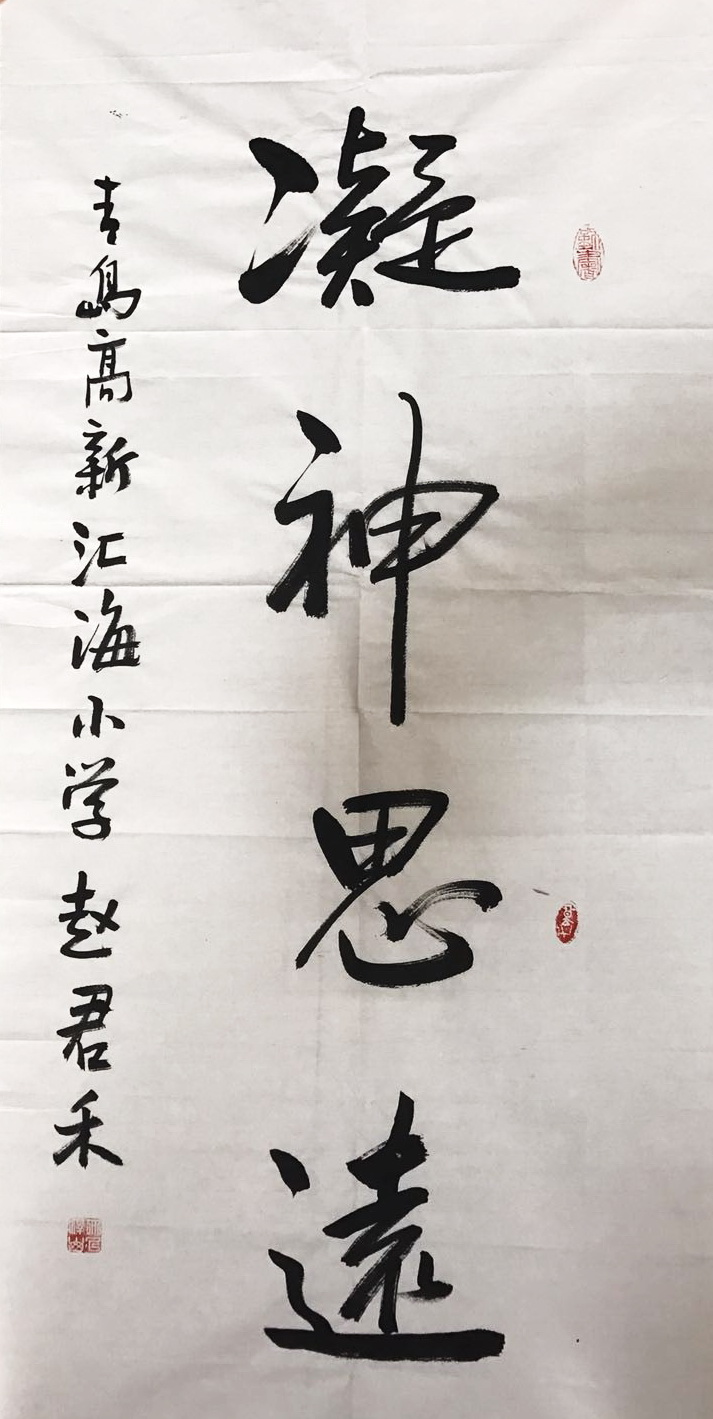 凝神思遠
青島高新汇海小学赵君禾